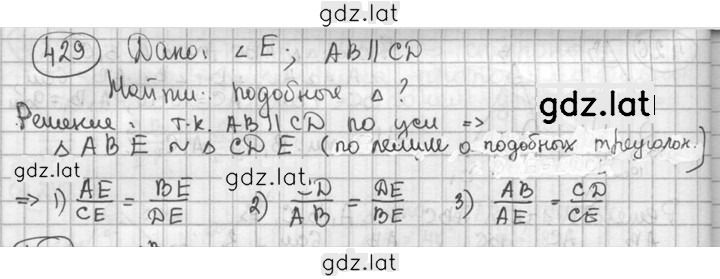 gdz.lat
429 Дано: ∠E; AB || CD
Найти: подобные Δ?
gdz.lat
Решение: т.к. AB || CD по усл =>
Δ ABE ~ Δ CDE (по лемме о подобных треуголон.)
gdz.lat
=> 1) AE/CE = BE/DE 2) CD/AB = DE/BE 3) AB/AE = CD/CE
gdz.lat